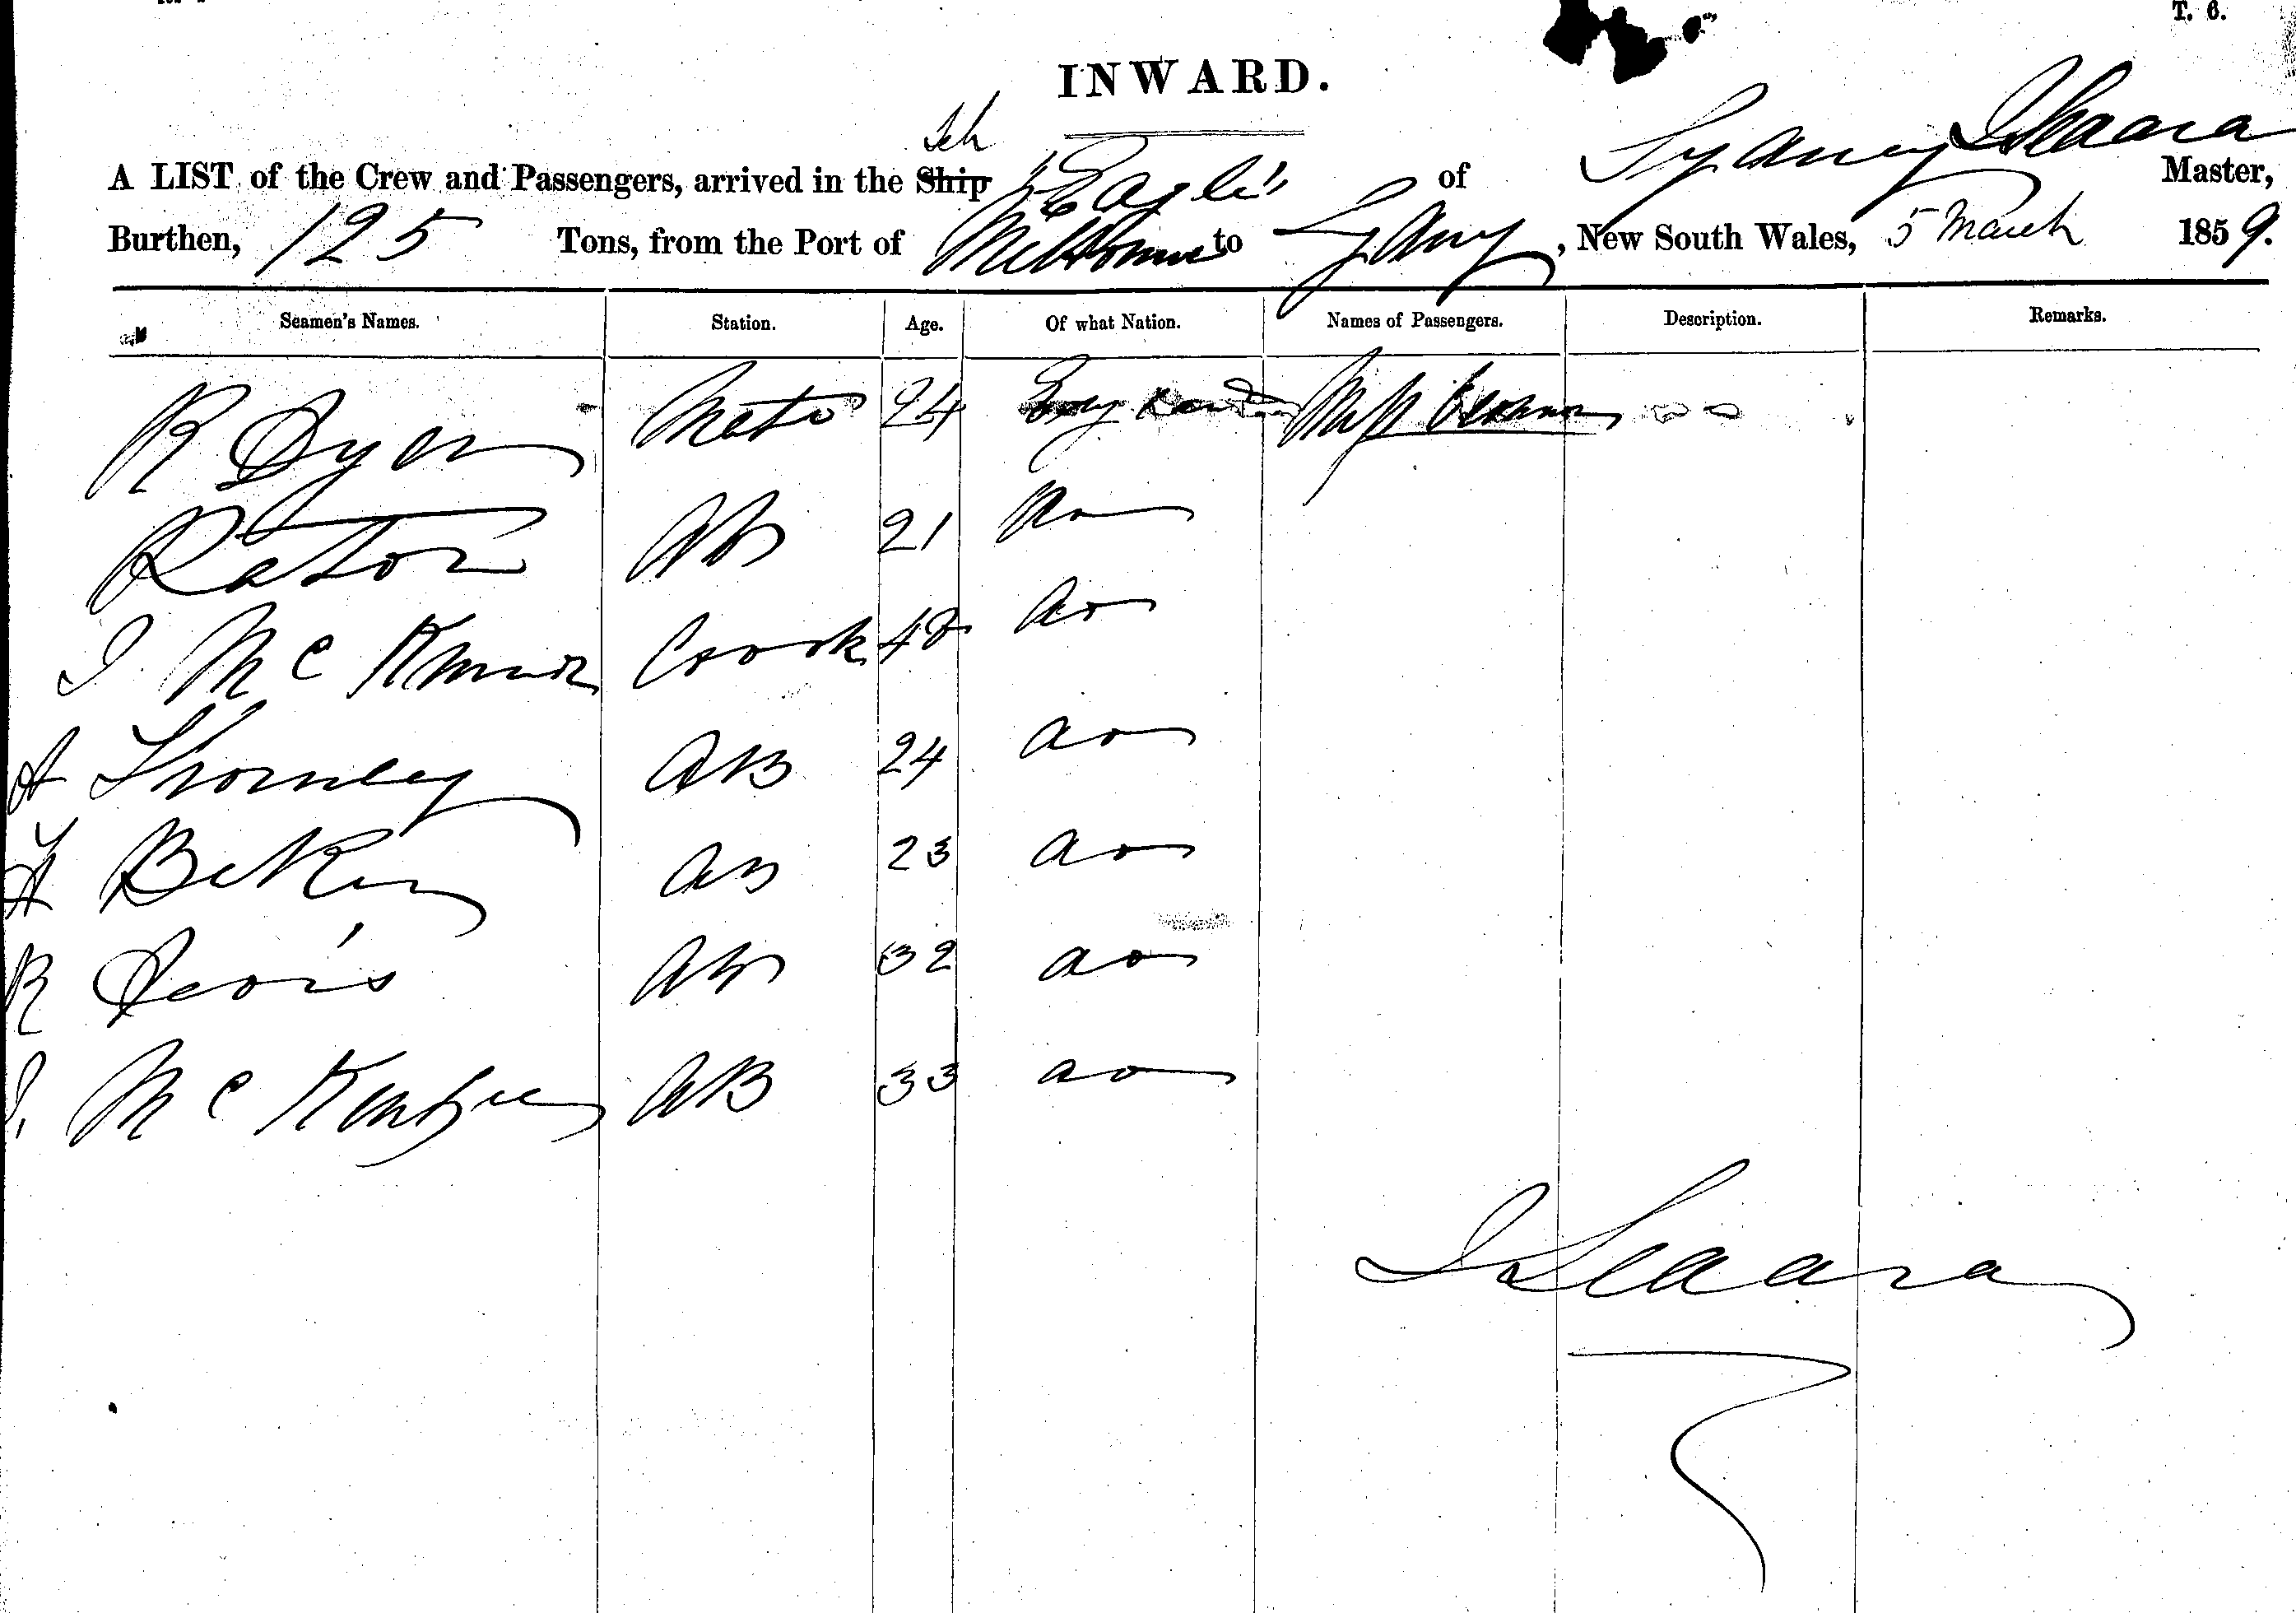 T. 6.
INWARD.
Sch
A LIST of the Crew and Passengers, arrived in the Ship "Eagle" of Sydney Master,
Burthen, 125 Tons, from the Port of Melbourne to Sydney, New South Wales, 5 March 1859.
Seamen's Names. Station. Age. Of what Nation. Names of Passengers. Description. Remarks.
R Dyer Mate 24
AB 21
J Mc Cook 48 do
A Thornley AB 24 do
Baker AB 23 do
R Davis AB 32 do
J. Mc Kenzie AB 33 do